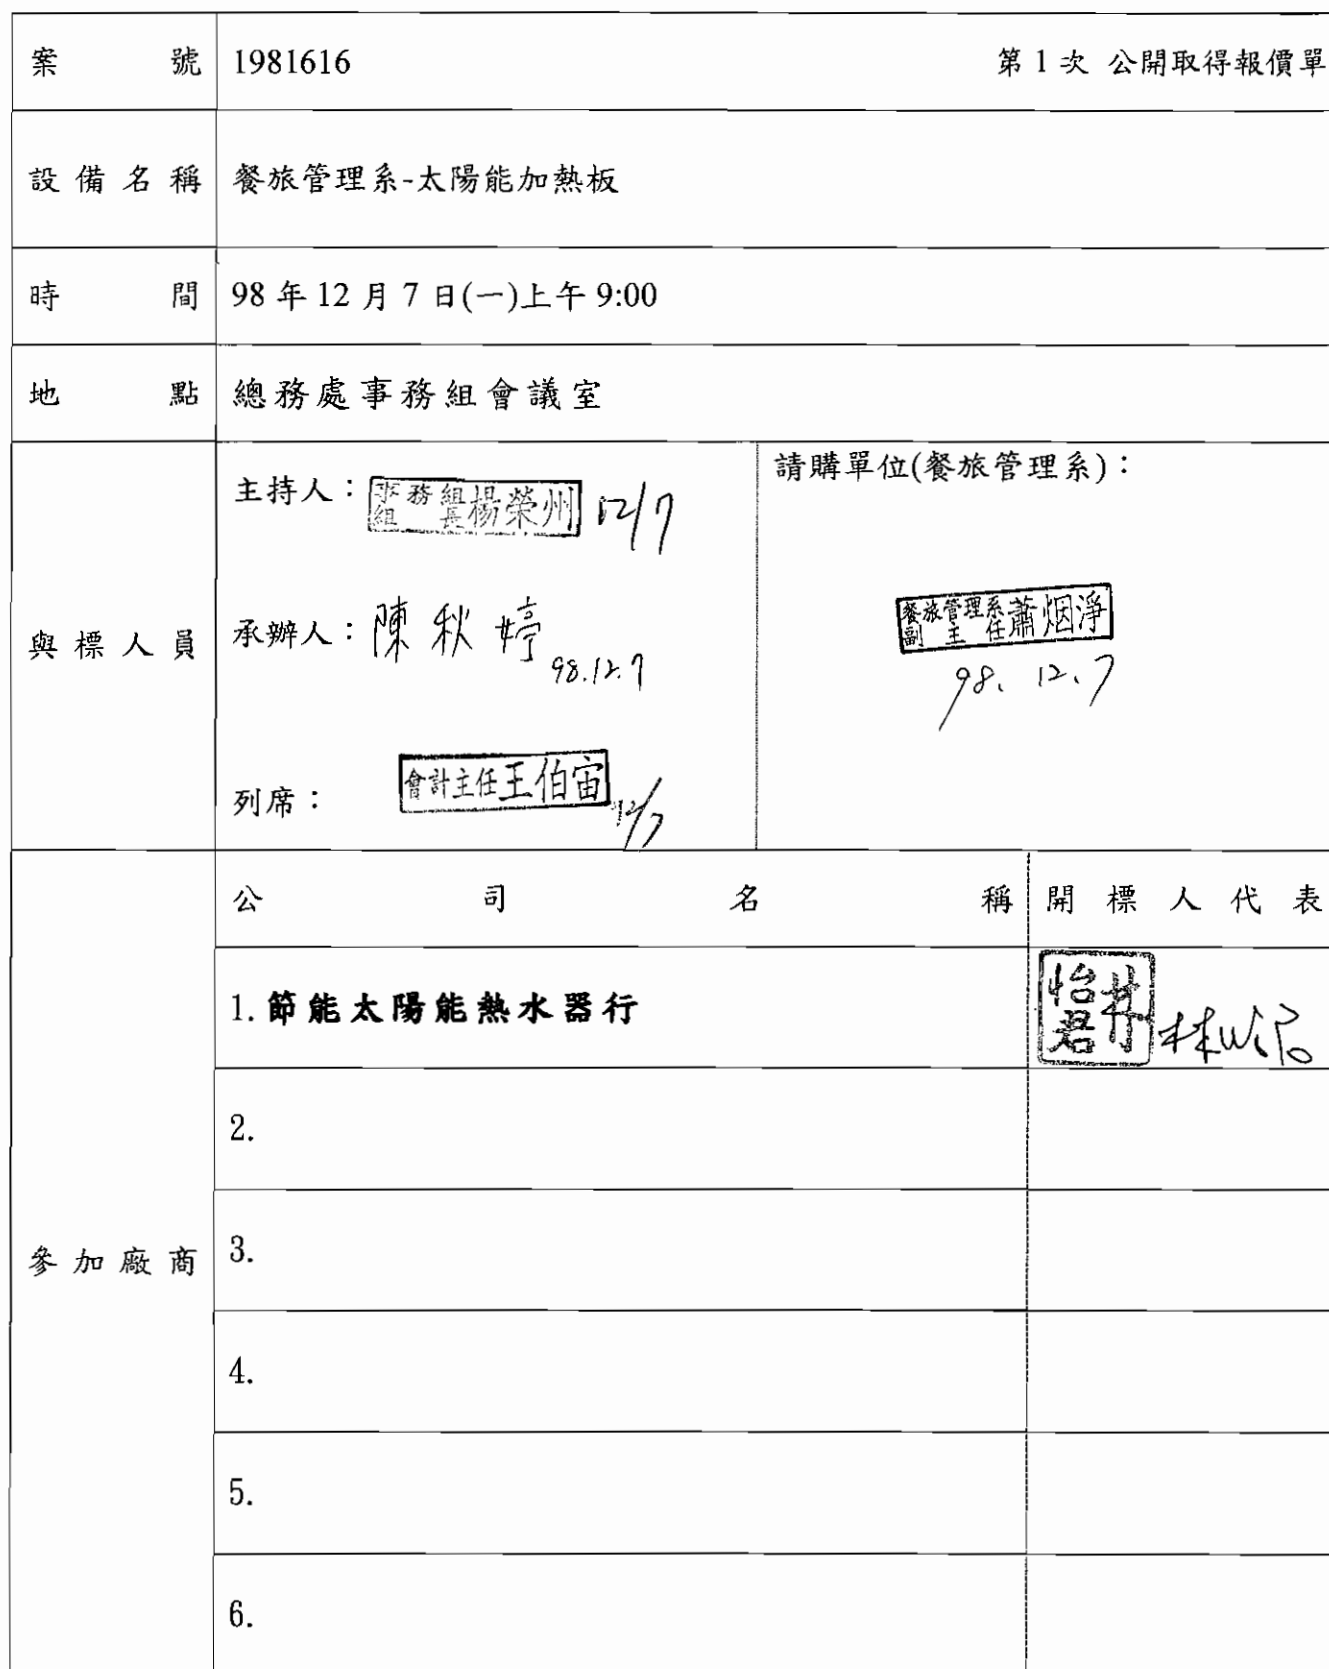 案號 1981616 第 1 次 公開取得報價單
設備名稱 餐旅管理系-太陽能加熱板
時間 98 年 12 月 7 日(一)上午 9:00
地點 總務處事務組會議室
與標人員
主持人：事務組組長楊榮州 12/7
承辦人：陳秋婷 98.12.7
列席：會計主任王伯宙 12/7
請購單位(餐旅管理系)：
餐旅管理系副主任蕭烟淨
98. 12. 7
參加廠商
公司名稱 開標人代表
1. 節能太陽能熱水器行 林怡君
2.
3.
4.
5.
6.